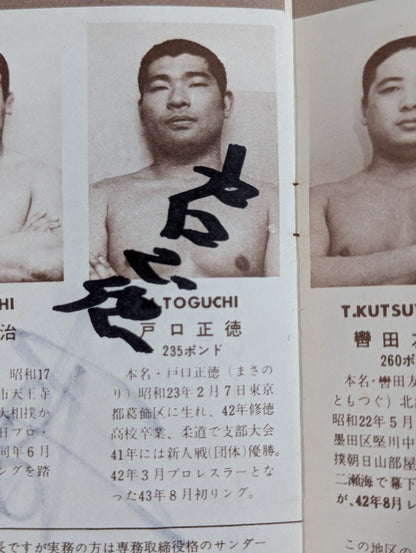 HI
治
昭和17
市天王寺
大相撲か
日プロ・
同年6月
ングを踏
M.TOGUCHI
戸口正徳
235ポンド
本名・戸口正徳(まさの
り)昭和23年2月7日東京
都葛飾区に生れ、42年修徳
高校卒業、柔道で支部大会
41年には新人戦(団体)優勝。
42年3月プロレスラーとな
った43年8月初リング。
T.KUTSU
轡田
260ポ
本名・轡田
ともつぐ)北
昭和22年5月
墨田区堅川中
撲朝日山部屋
二瀬海で幕下
が、42年8月レ
長ですが実務の方は専務取締役格のサンダー
この地区の